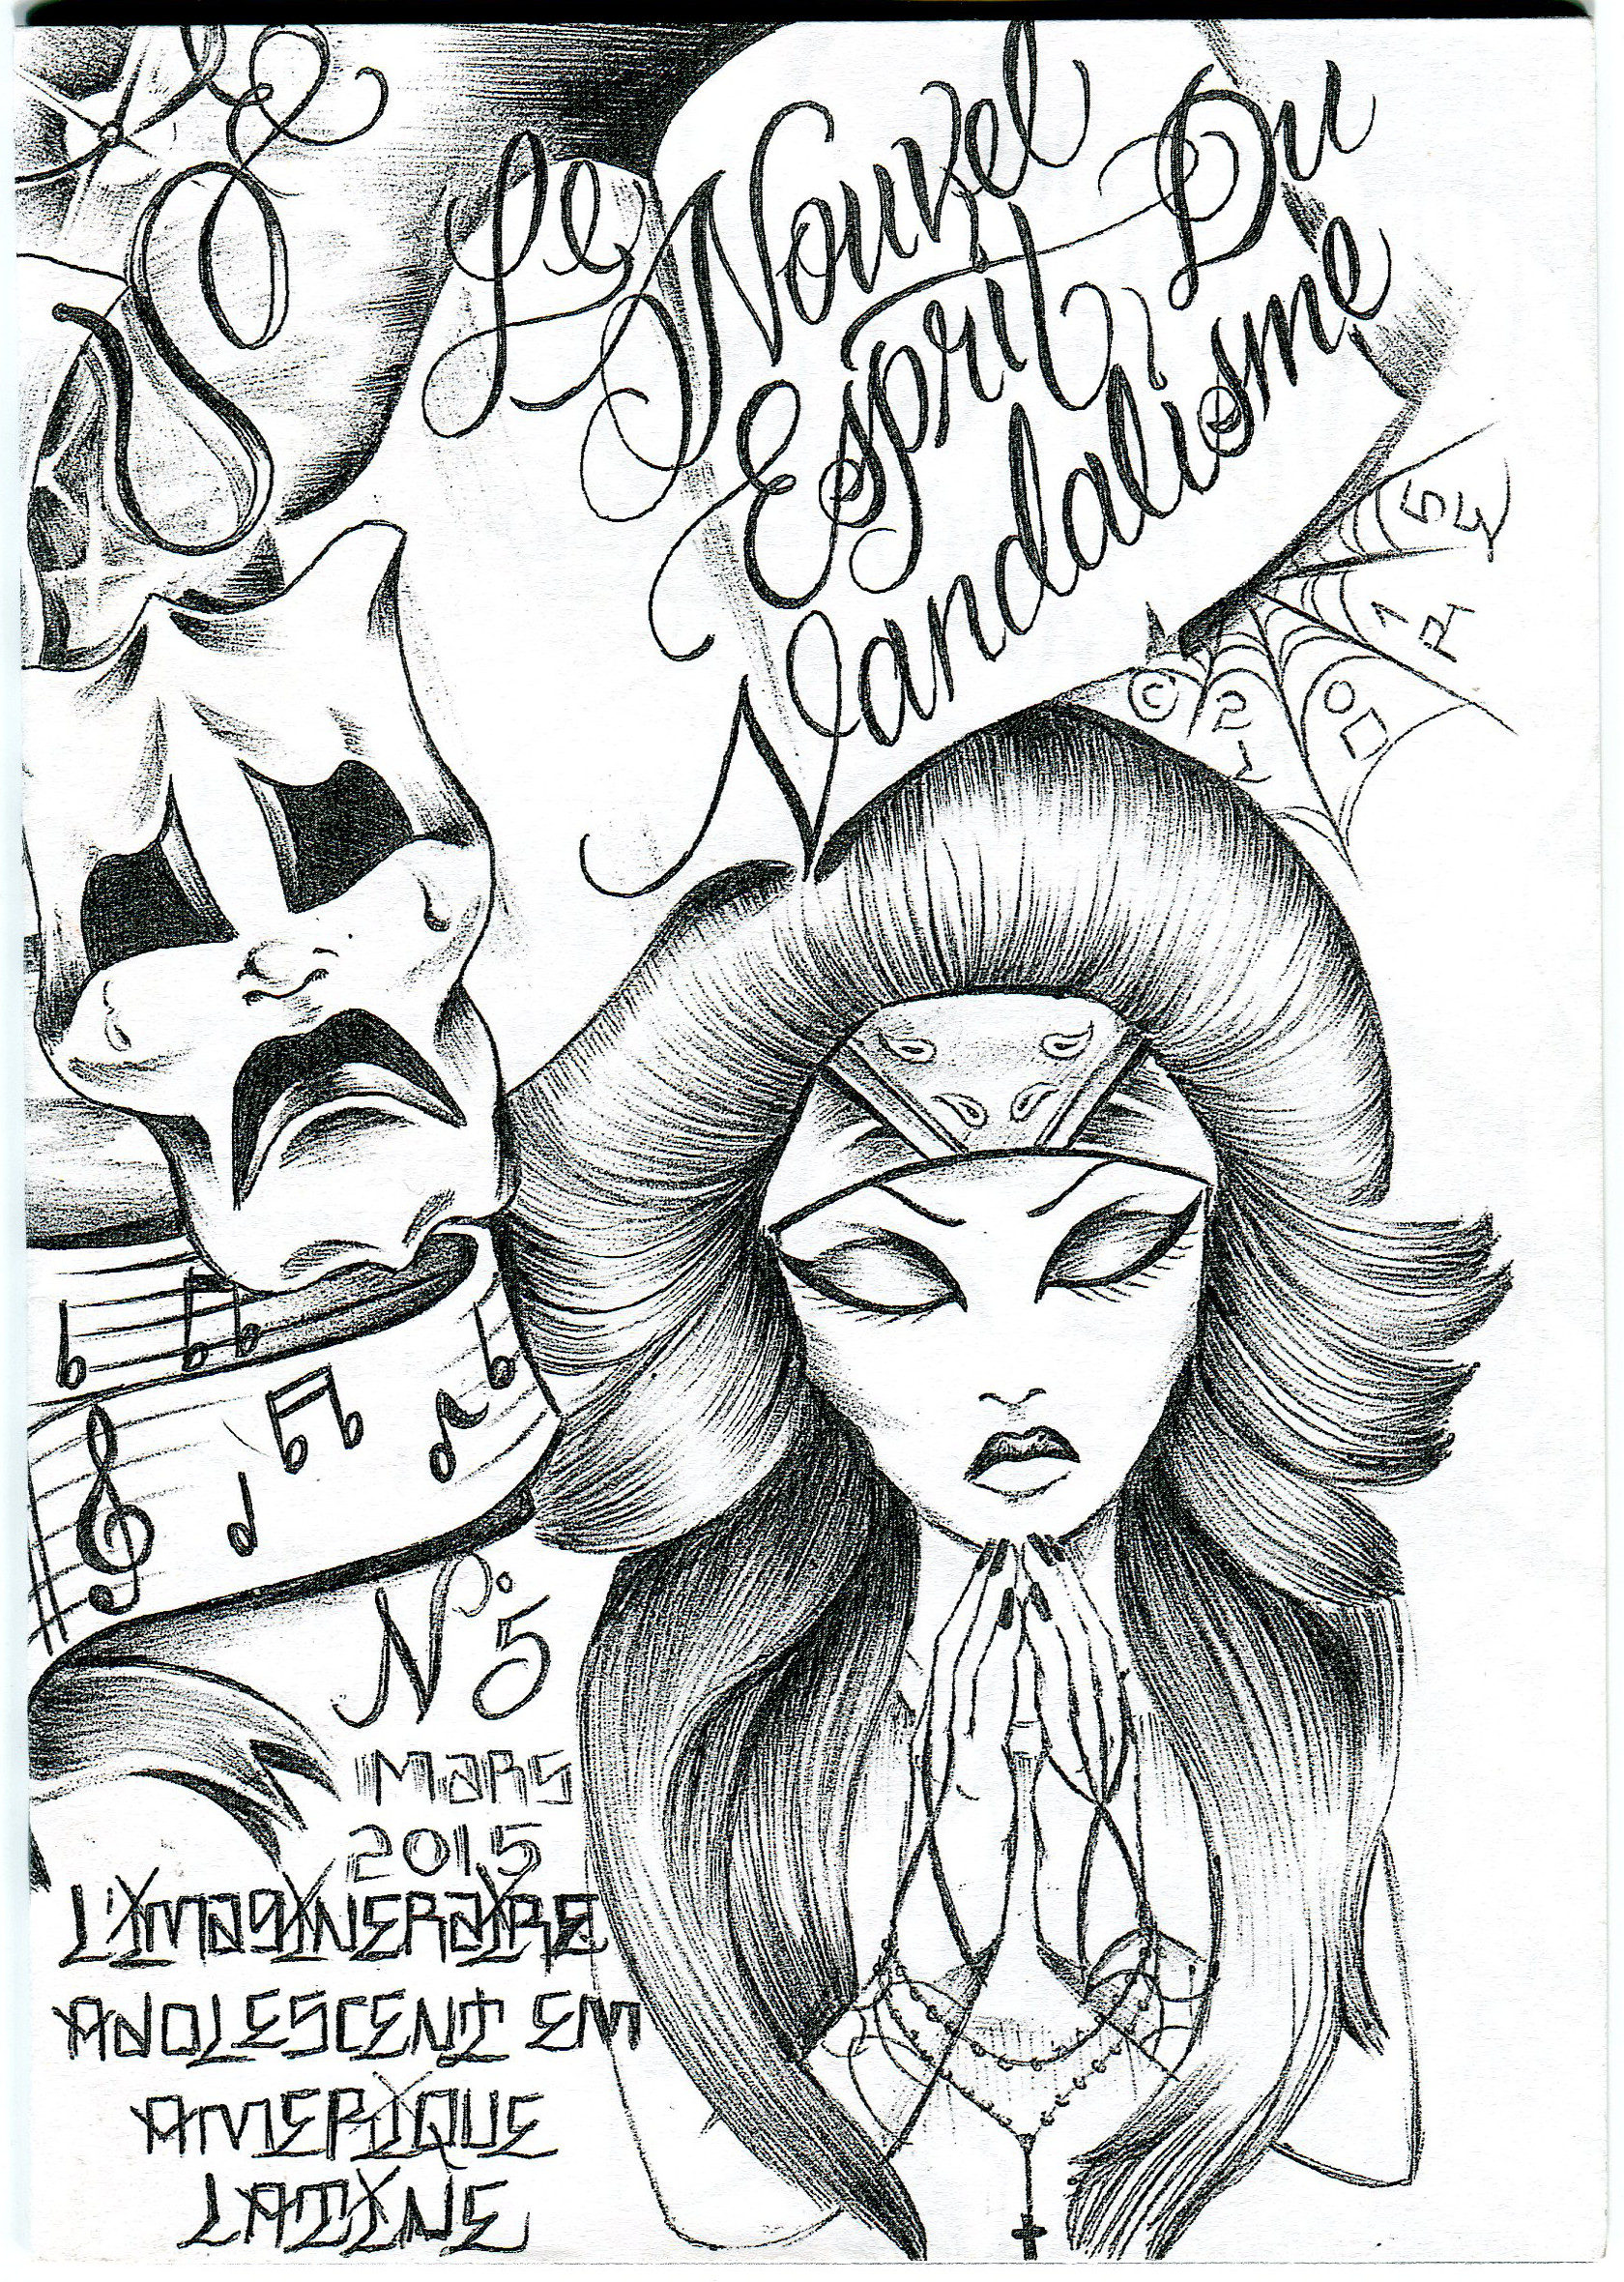 Le Nouvel
Esprit Du
Vandalisme
©
N° 5
MARS
2015
L'IMAGINERAIRE
ADOLESCENT EM
AMERIQUE
LATINE